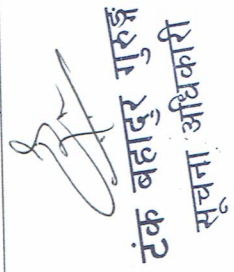 टंक बहादुर गुरुङ्ग
सूचना अधिकारी